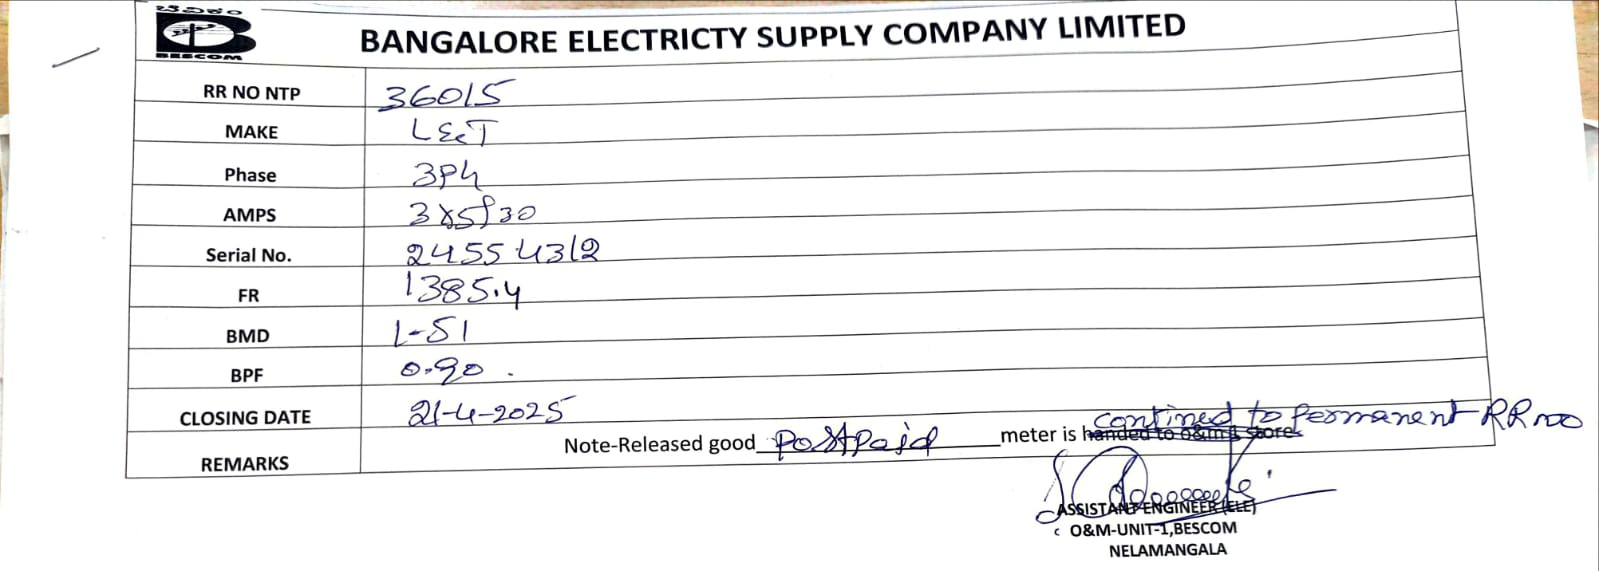 ಬೆವಿಕಂ
BESCOM
BANGALORE ELECTRICTY SUPPLY COMPANY LIMITED
RR NO NTP 36015
MAKE L&T
Phase 3Ph
AMPS 3x5/30
Serial No. 24554312
FR 1385.4
BMD 1-51
BPF 0.90 .
CLOSING DATE 21-4-2025
contined to Permanent RR no
REMARKS Note-Released good Postpaid meter is handed to o&m 1 store
ASSISTANT ENGINEER (ELE)
O&M-UNIT-1,BESCOM
NELAMANGALA